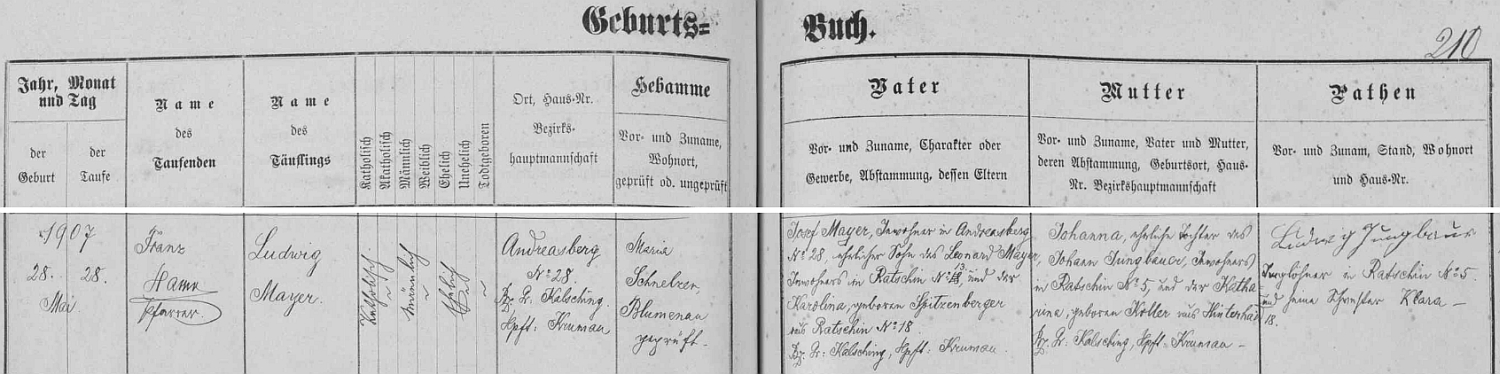 Geburts=
Buch.
210
Jahr, Monat
und Tag
der
Geburt
der
Taufe
Name
des
Taufenden
Name
des
Täuflings
Katholisch
Akatholisch
Männlich
Weiblich
Ehelich
Unehelich
Todtgeboren
Ort, Haus-Nr.
Bezirks-
hauptmannschaft
Hebamme
Vor- und Zuname,
Wohnort,
geprüft od. ungeprüft
Vater
Vor- und Zuname, Charakter oder
Gewerbe, Abstammung, dessen Eltern
Mutter
Vor- und Zuname, Vater und Mutter,
deren Abstammung, Geburtsort, Haus-
Nr. Bezirkshauptmannschaft
Pathen
Vor- und Zunam, Stand, Wohnort
und Haus-Nr.
1907
28. 28.
Mai
Franz
Hamr
Pfarrer.
Ludwig
Mayer.
Katholisch
Männlich
Ehelich
Andreasberg
No 28.
Bz. G. Kalsching.
Hpft. Kruman
Maria
Blumenau
geprüft.
Josef Mayer, Inwohner in Andreasberg
No 28, ehelicher Sohn des Leonard Mayer,
Inwohners in Ratschin No 13, und der
Karolina, geboren Spitzenberger
aus Ratschin No 18.
Bz. G. Kalsching, Hpft. Kruman.
Johanna, eheliche Tochter des
Johann Jungbauer, Inwohners
in Ratschin No 5, und der Katha-
rina, geboren Koller aus
18.
Bz. G. Kalsching, Hpft. Kruman
Ludwig Jungbaur
Taglöhner in Ratschin No 5.
und seine Schwester Klara